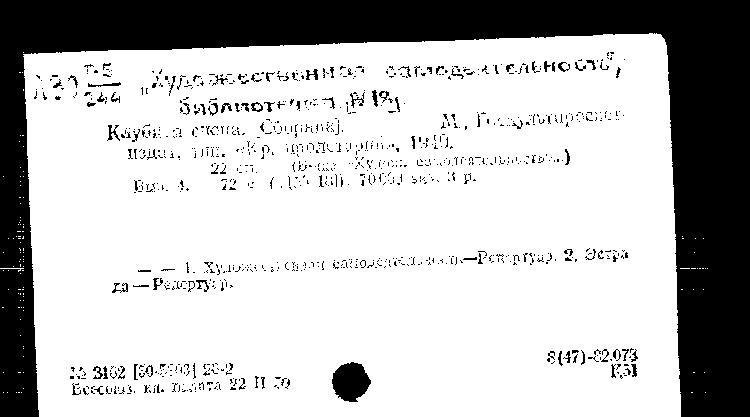 Г-5
244
„Художественная самодеятельность",
библиотечка № 19.
Клубная сцена. [Сборник]. М., Госкультпросвет-
издат, тип. «Кр. пролетарий», 1949.
22 см. «Худож. самодеятельность».)
Вып. 4. 72 с. 3 р.
— — 1. Художественная самодеятельность—Репертуар. 2. Эстра
да — Репертуар.
№ 3102 28-2
Всесоюз. кн. палата 22 II 50
8(47)-82.073
К51